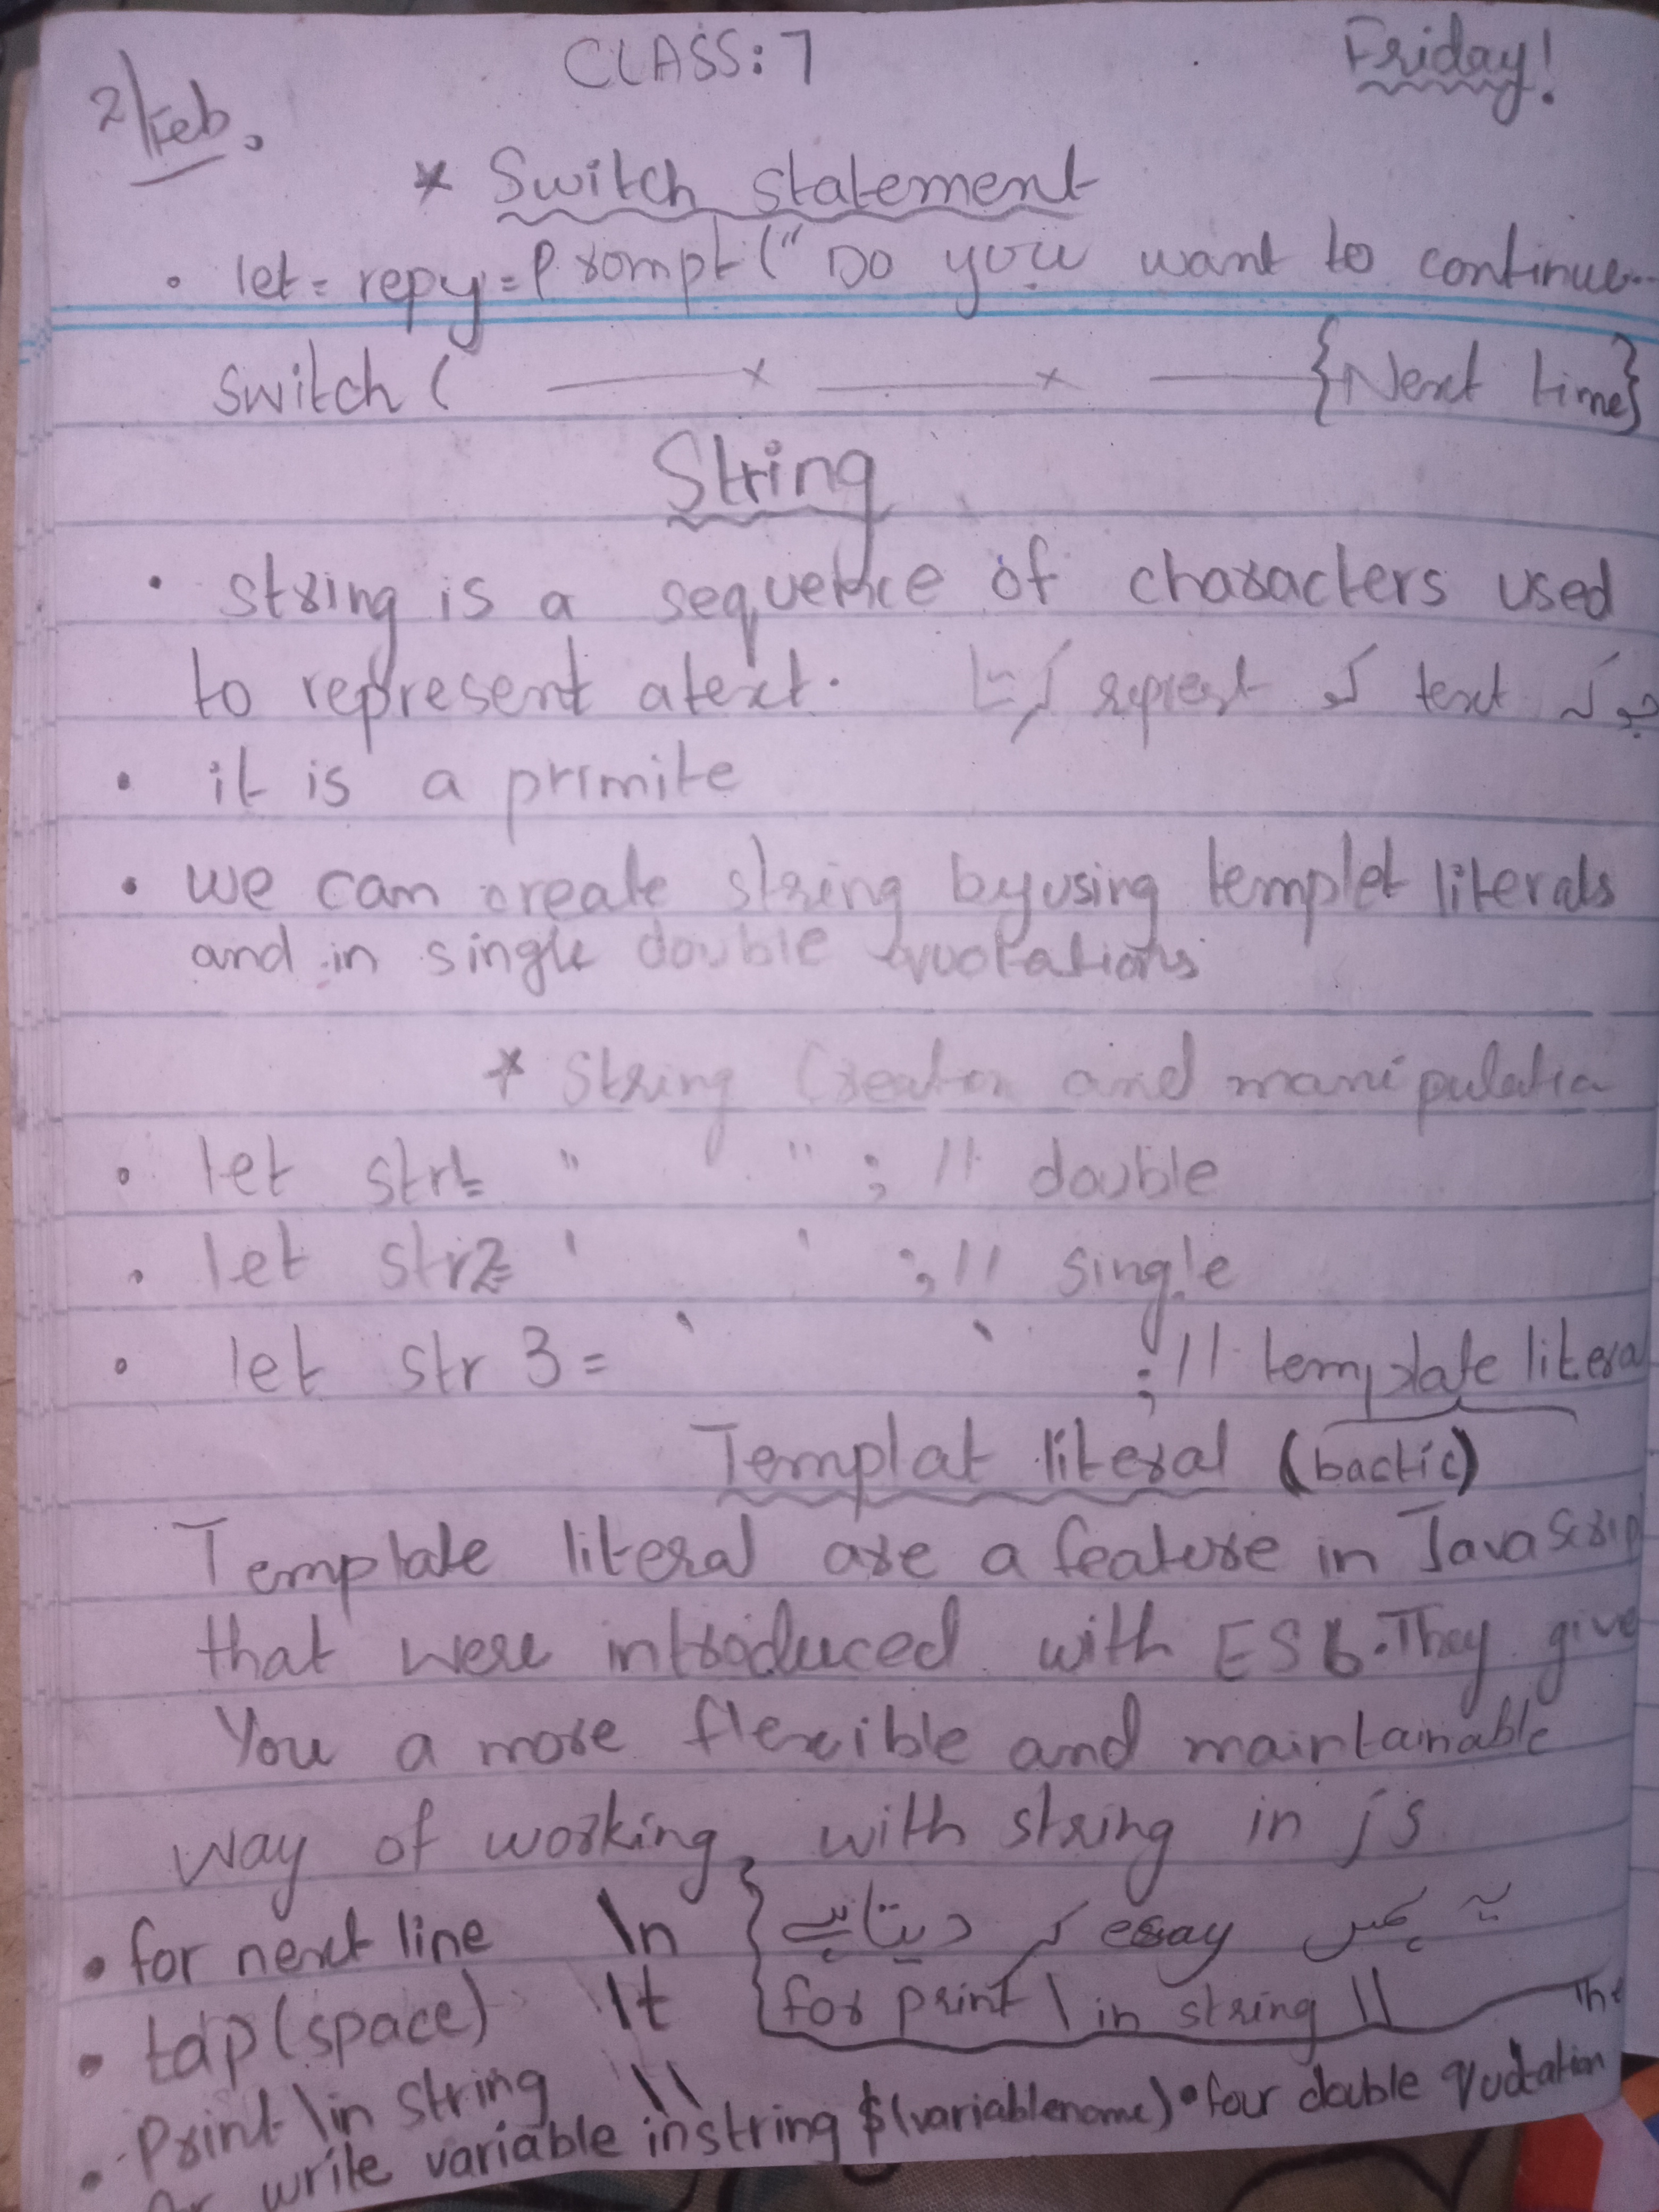 CLASS: 7
Friday!
2/Feb.
* Switch statement
• let = repy = Prompt (" Do you want to continue...
Switch ( ——x ——x —— {Next time}
String
• string is a sequence of characters used
to represent a text. جو کہ text کو represt کرتا
• it is a primite
• we can create string by using templet literals
and in single double quotations
* String Creation and manipulatio
• let str1= " " ; // double
• let str2= ' ' ; // single
• let str 3 = ` ` ; // template litera
Templat literal (bactic)
Template literal are a feature in JavaScrip
that were introduced with ES6. They give
You a more flexible and maintainable
way of working with string in js
یہ ہمیں essay کر دیتا ہے
• for next line \n
for print \ in string \\
The
• tap (space) \t
• Print \ in string \\
write variable in string $(variablename) • four double qudtation